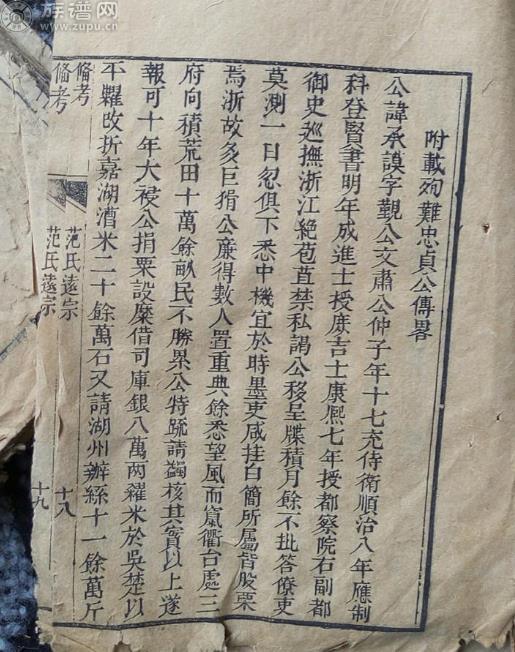 附載殉難忠貞公傳畧
公諱承謨字覲公文肅公仲子年十七充侍衛順治八年應制
科登賢書明年成進士授庶吉士康熙七年授都察院右副都
御史巡撫浙江絶苞苴禁私謁公移呈牒積月餘不批答僚吏
莫測一日忽俱下悉中機宜於時墨吏咸挂白簡所屬皆股栗
焉浙故多巨猾公廉得數人置重典餘悉望風而竄衢台處三
府向積荒田十萬餘畝民不勝累公特疏請蠲核其實以上遂
報可十年大祲公捐粟設糜借司庫銀八萬兩糴米於吳楚以
平糶改折嘉湖漕米二十餘萬石又請湖州辦絲十一餘萬斤
備考
范氏遠宗
十八
備考
范氏遠宗
十九
族谱网
www.zupu.cn